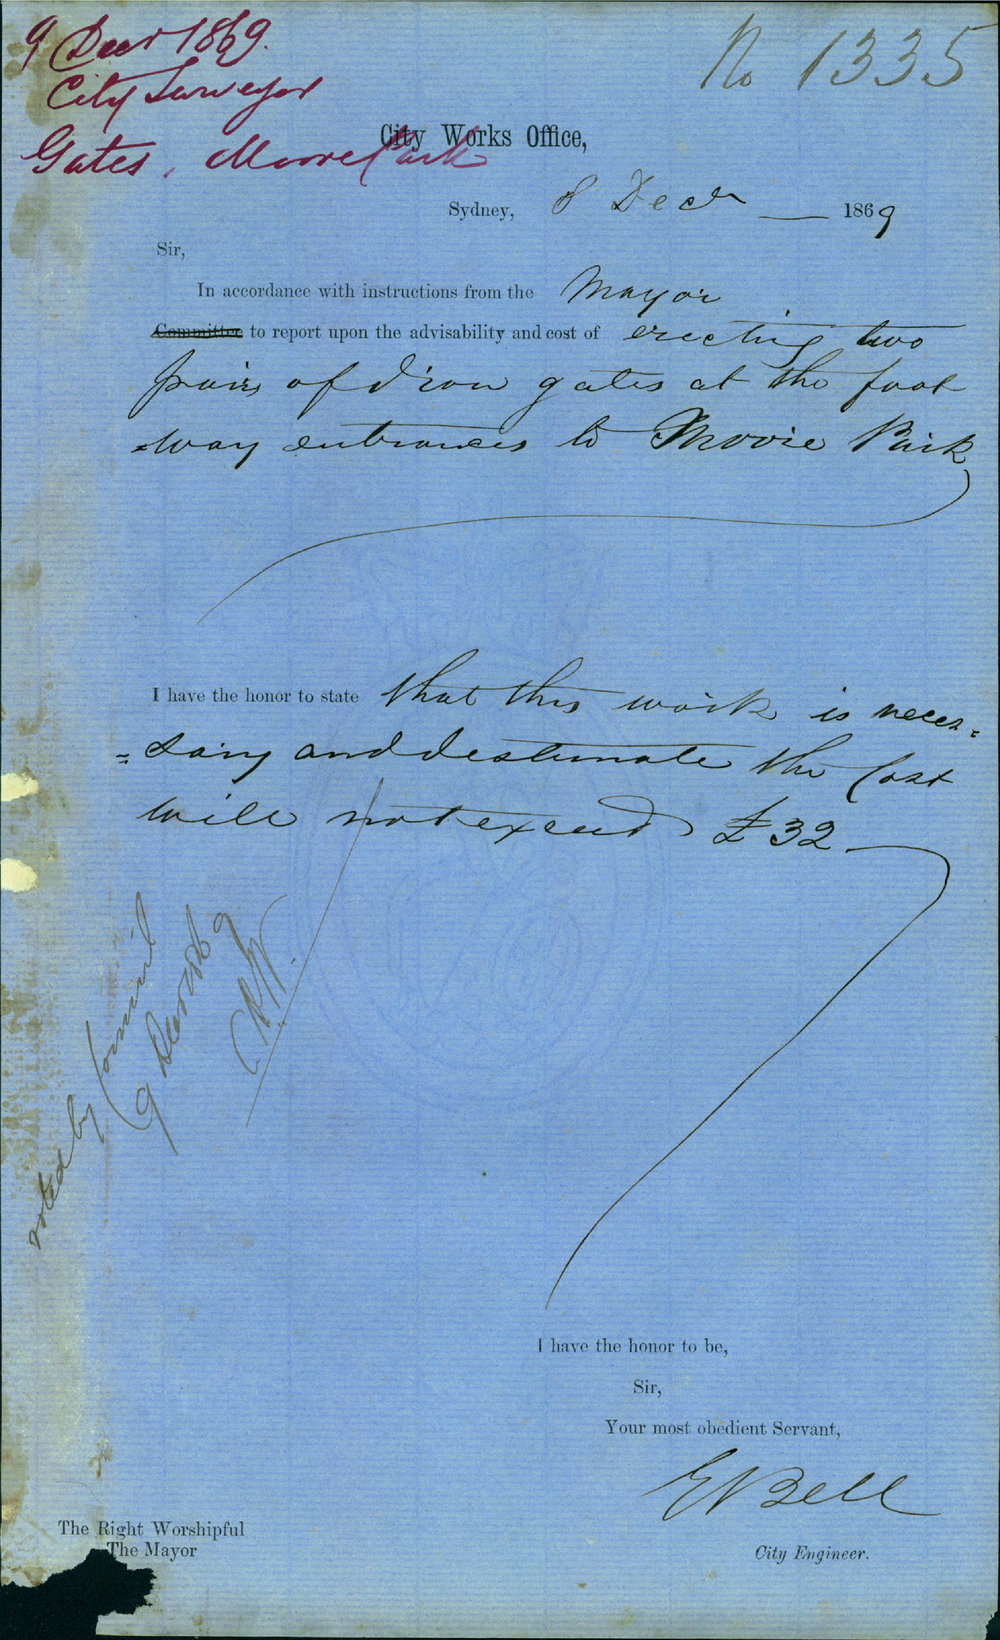 9 Decr 1869.
City Surveyor
Gates, Moore Park
No 1335
City Works Office,
Sydney, 8 Decr 1869
Sir,
In accordance with instructions from the Mayor
Committee to report upon the advisability and cost of erecting two
pairs of Iron gates at the foot
way entrances to Moore Park
I have the honor to state that this work is neces=
=sary and I estimate the Cost
will not exceed £32
voted by Council
9 Decr 69
I have the honor to be,
Sir,
Your most obedient Servant,
E Bell
City Engineer.
The Right Worshipful
The Mayor